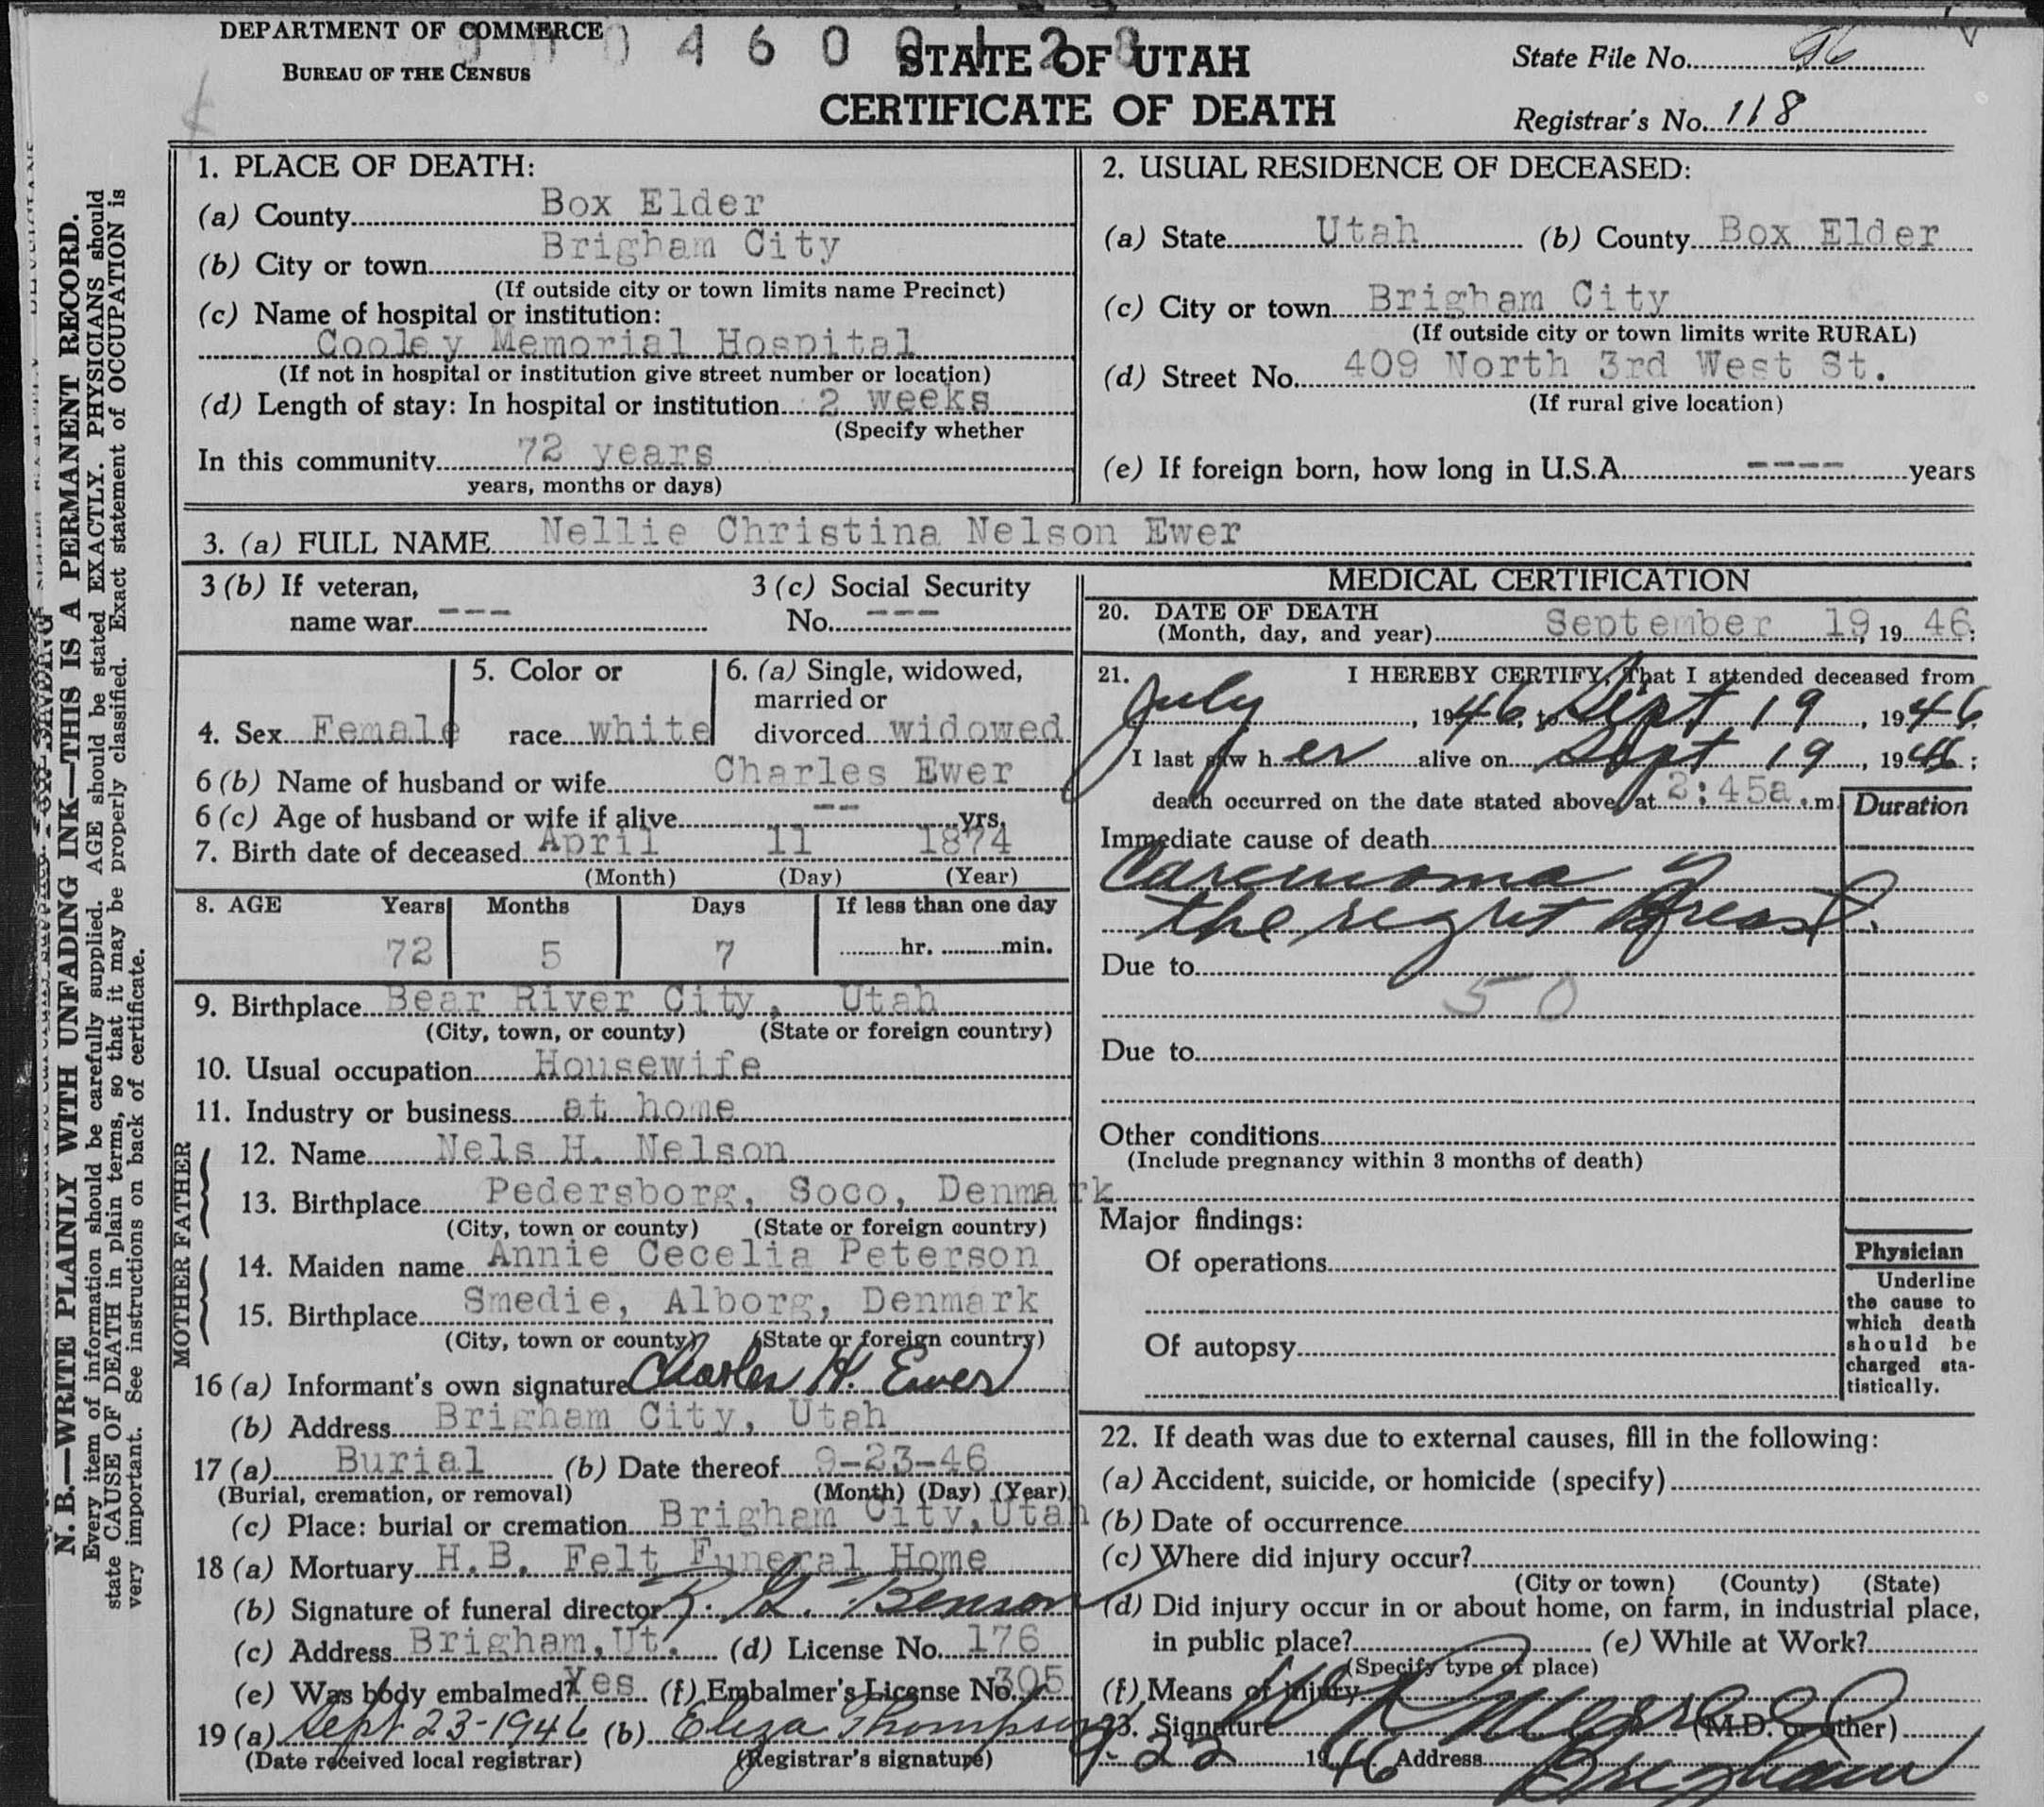 DEPARTMENT OF COMMERCE
BUREAU OF THE CENSUS
STATE OF UTAH
CERTIFICATE OF DEATH
State File No. 96
Registrar's No. 118
N. B.—WRITE PLAINLY WITH UNFADING INK—THIS IS A PERMANENT RECORD.
Every item of information should be carefully supplied. AGE should be stated EXACTLY. PHYSICIANS should
state CAUSE OF DEATH in plain terms, so that it may be properly classified. Exact statement of OCCUPATION is
very important. See instructions on back of certificate.
1. PLACE OF DEATH:
(a) County Box Elder
(b) City or town Brigham City
(If outside city or town limits name Precinct)
(c) Name of hospital or institution:
Cooley Memorial Hospital
(If not in hospital or institution give street number or location)
(d) Length of stay: In hospital or institution 2 weeks
(Specify whether
In this community 72 years
years, months or days)
2. USUAL RESIDENCE OF DECEASED:
(a) State Utah (b) County Box Elder
(c) City or town Brigham City
(If outside city or town limits write RURAL)
(d) Street No. 409 North 3rd West St.
(If rural give location)
(e) If foreign born, how long in U.S.A. ---- years
3. (a) FULL NAME Nellie Christina Nelson Ewer
3 (b) If veteran,
name war ---
3 (c) Social Security
No. ---
4. Sex Female
5. Color or
race white
6. (a) Single, widowed,
married or
divorced widowed
6 (b) Name of husband or wife Charles Ewer
6 (c) Age of husband or wife if alive -- yrs.
7. Birth date of deceased April 11 1874
(Month) (Day) (Year)
8. AGE Years Months Days If less than one day
72 5 7 hr. min.
9. Birthplace Bear River City, Utah
(City, town, or county) (State or foreign country)
10. Usual occupation Housewife
11. Industry or business at home
FATHER
12. Name Nels H. Nelson
13. Birthplace Pedersborg, Soco, Denmark
(City, town or county) (State or foreign country)
MOTHER
14. Maiden name Annie Cecelia Peterson
15. Birthplace Smedie, Alborg, Denmark
(City, town or county) (State or foreign country)
16 (a) Informant's own signature Charles H. Ewer
(b) Address Brigham City, Utah
17 (a) Burial (b) Date thereof 9-23-46
(Burial, cremation, or removal) (Month) (Day) (Year)
(c) Place: burial or cremation Brigham City, Utah
18 (a) Mortuary H.B. Felt Funeral Home
(b) Signature of funeral director R. G. Benson
(c) Address Brigham, Ut. (d) License No. 176
(e) Was body embalmed? Yes (f) Embalmer's License No. 305
19 (a) Sept 23-1946 (b) Eliza Thompson
(Date received local registrar) (Registrar's signature)
MEDICAL CERTIFICATION
20. DATE OF DEATH
(Month, day, and year) September 19, 1946;
21. I HEREBY CERTIFY, That I attended deceased from
July, 1946, to Sept 19, 1946
I last saw her alive on Sept 19, 1946;
death occurred on the date stated above, at 2:45a.m.
Duration
Immediate cause of death
Carcinoma of
the right Breast.
Due to
50
Due to
Other conditions
(Include pregnancy within 3 months of death)
Major findings:
Of operations
Of autopsy
Physician
Underline
the cause to
which death
should be
charged sta-
tistically.
22. If death was due to external causes, fill in the following:
(a) Accident, suicide, or homicide (specify)
(b) Date of occurrence
(c) Where did injury occur?
(City or town) (County) (State)
(d) Did injury occur in or about home, on farm, in industrial place,
in public place? (e) While at Work?
(Specify type of place)
(f) Means of injury
23. Signature (M.D. or other)
9-22 1946 Address Brigham